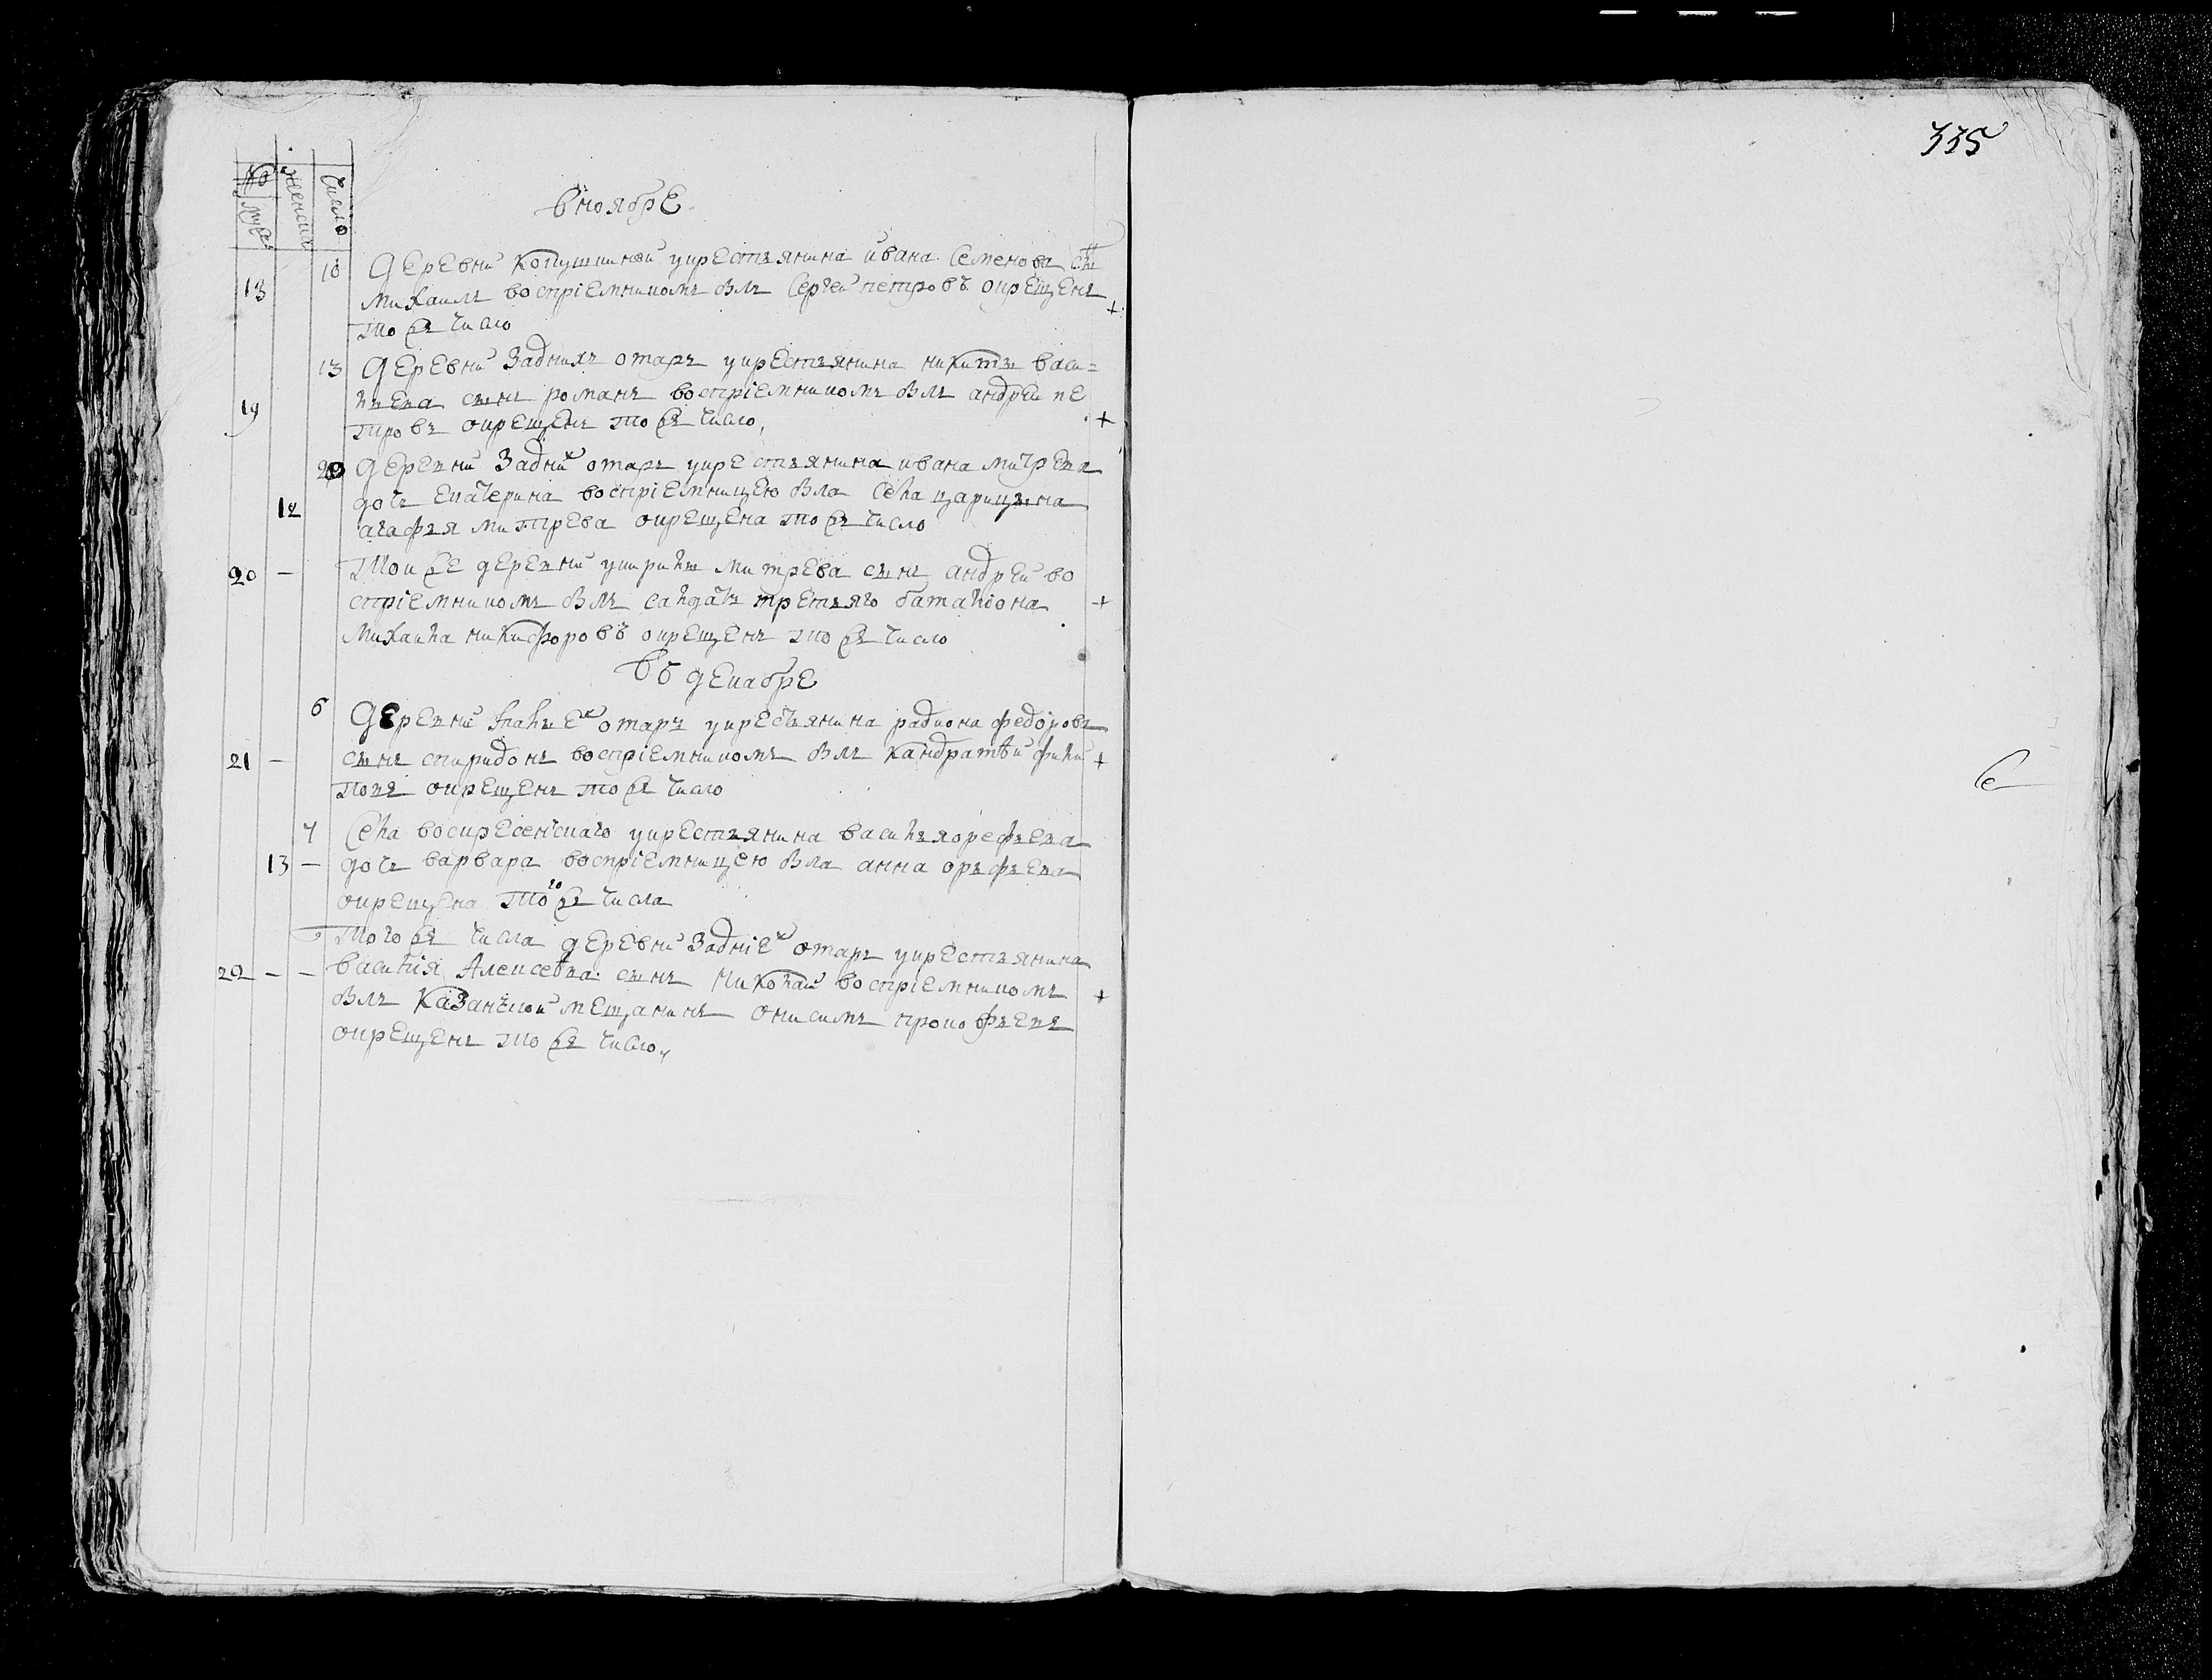 335
№ мужс женска число
в ноябрЕ
18 10 дЕрЕвни Копушиной укрЕстьянина ивана Семенова сн
михаилъ воспрiЕмникомъ былъ СергЕи петровъ окрЕщЕнъ +
то же число
13 дЕрЕвни Заднихъ отаръ укрЕстьянина никиты васи=
19 льЕва сынъ романъ воспрiЕмникомъ былъ андрЕи пЕ
тровъ окрЕщЕнъ то же число +
20 дЕрЕвни Задних отаръ укрЕстьянина ивана митрЕва
12 дочь Екатерина воспрiЕмницЕю была села царицына
агафья митрЕва окрЕщЕна то же число
20 — той же дЕрЕвни укирилы митрева сынъ андрЕи во
спрiЕмникомъ былъ салдатъ третьяго баталiона +
михаила никифоровъ окрЕщЕнъ то же число
въ дЕкабрЕ
6 дЕрЕвни отаръ укрЕстьянина радиона федоровъ
21 — сынъ спиридонъ воспрiЕмникомъ былъ Кандратѣи фили +
повъ окрЕщЕнъ то же число
7 Села воскресенскаго укрЕстьянина василья орефьЕва
13 — дочь варвара воспрiЕмницЕю была анна орЪфьЕва
окрЕщЕна того же числа
того же числа дЕрЕвни ЗаднiЕх отаръ укрЕстьянина
22 — — василия Алексѣва сынъ Николаи воспрiЕмникомъ
былъ Казанской мЕщанинъ онисимъ прокофьЕвъ +
окрЕщЕнъ то же число